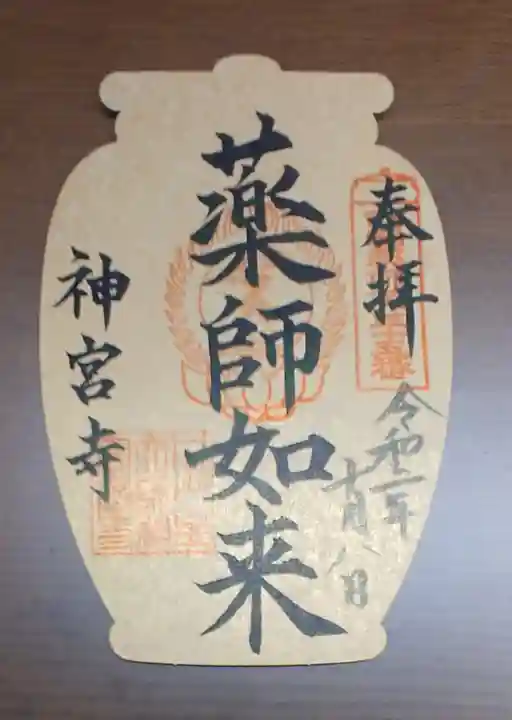 奉拝
令和二年
十月八日
薬師如来
神宮寺